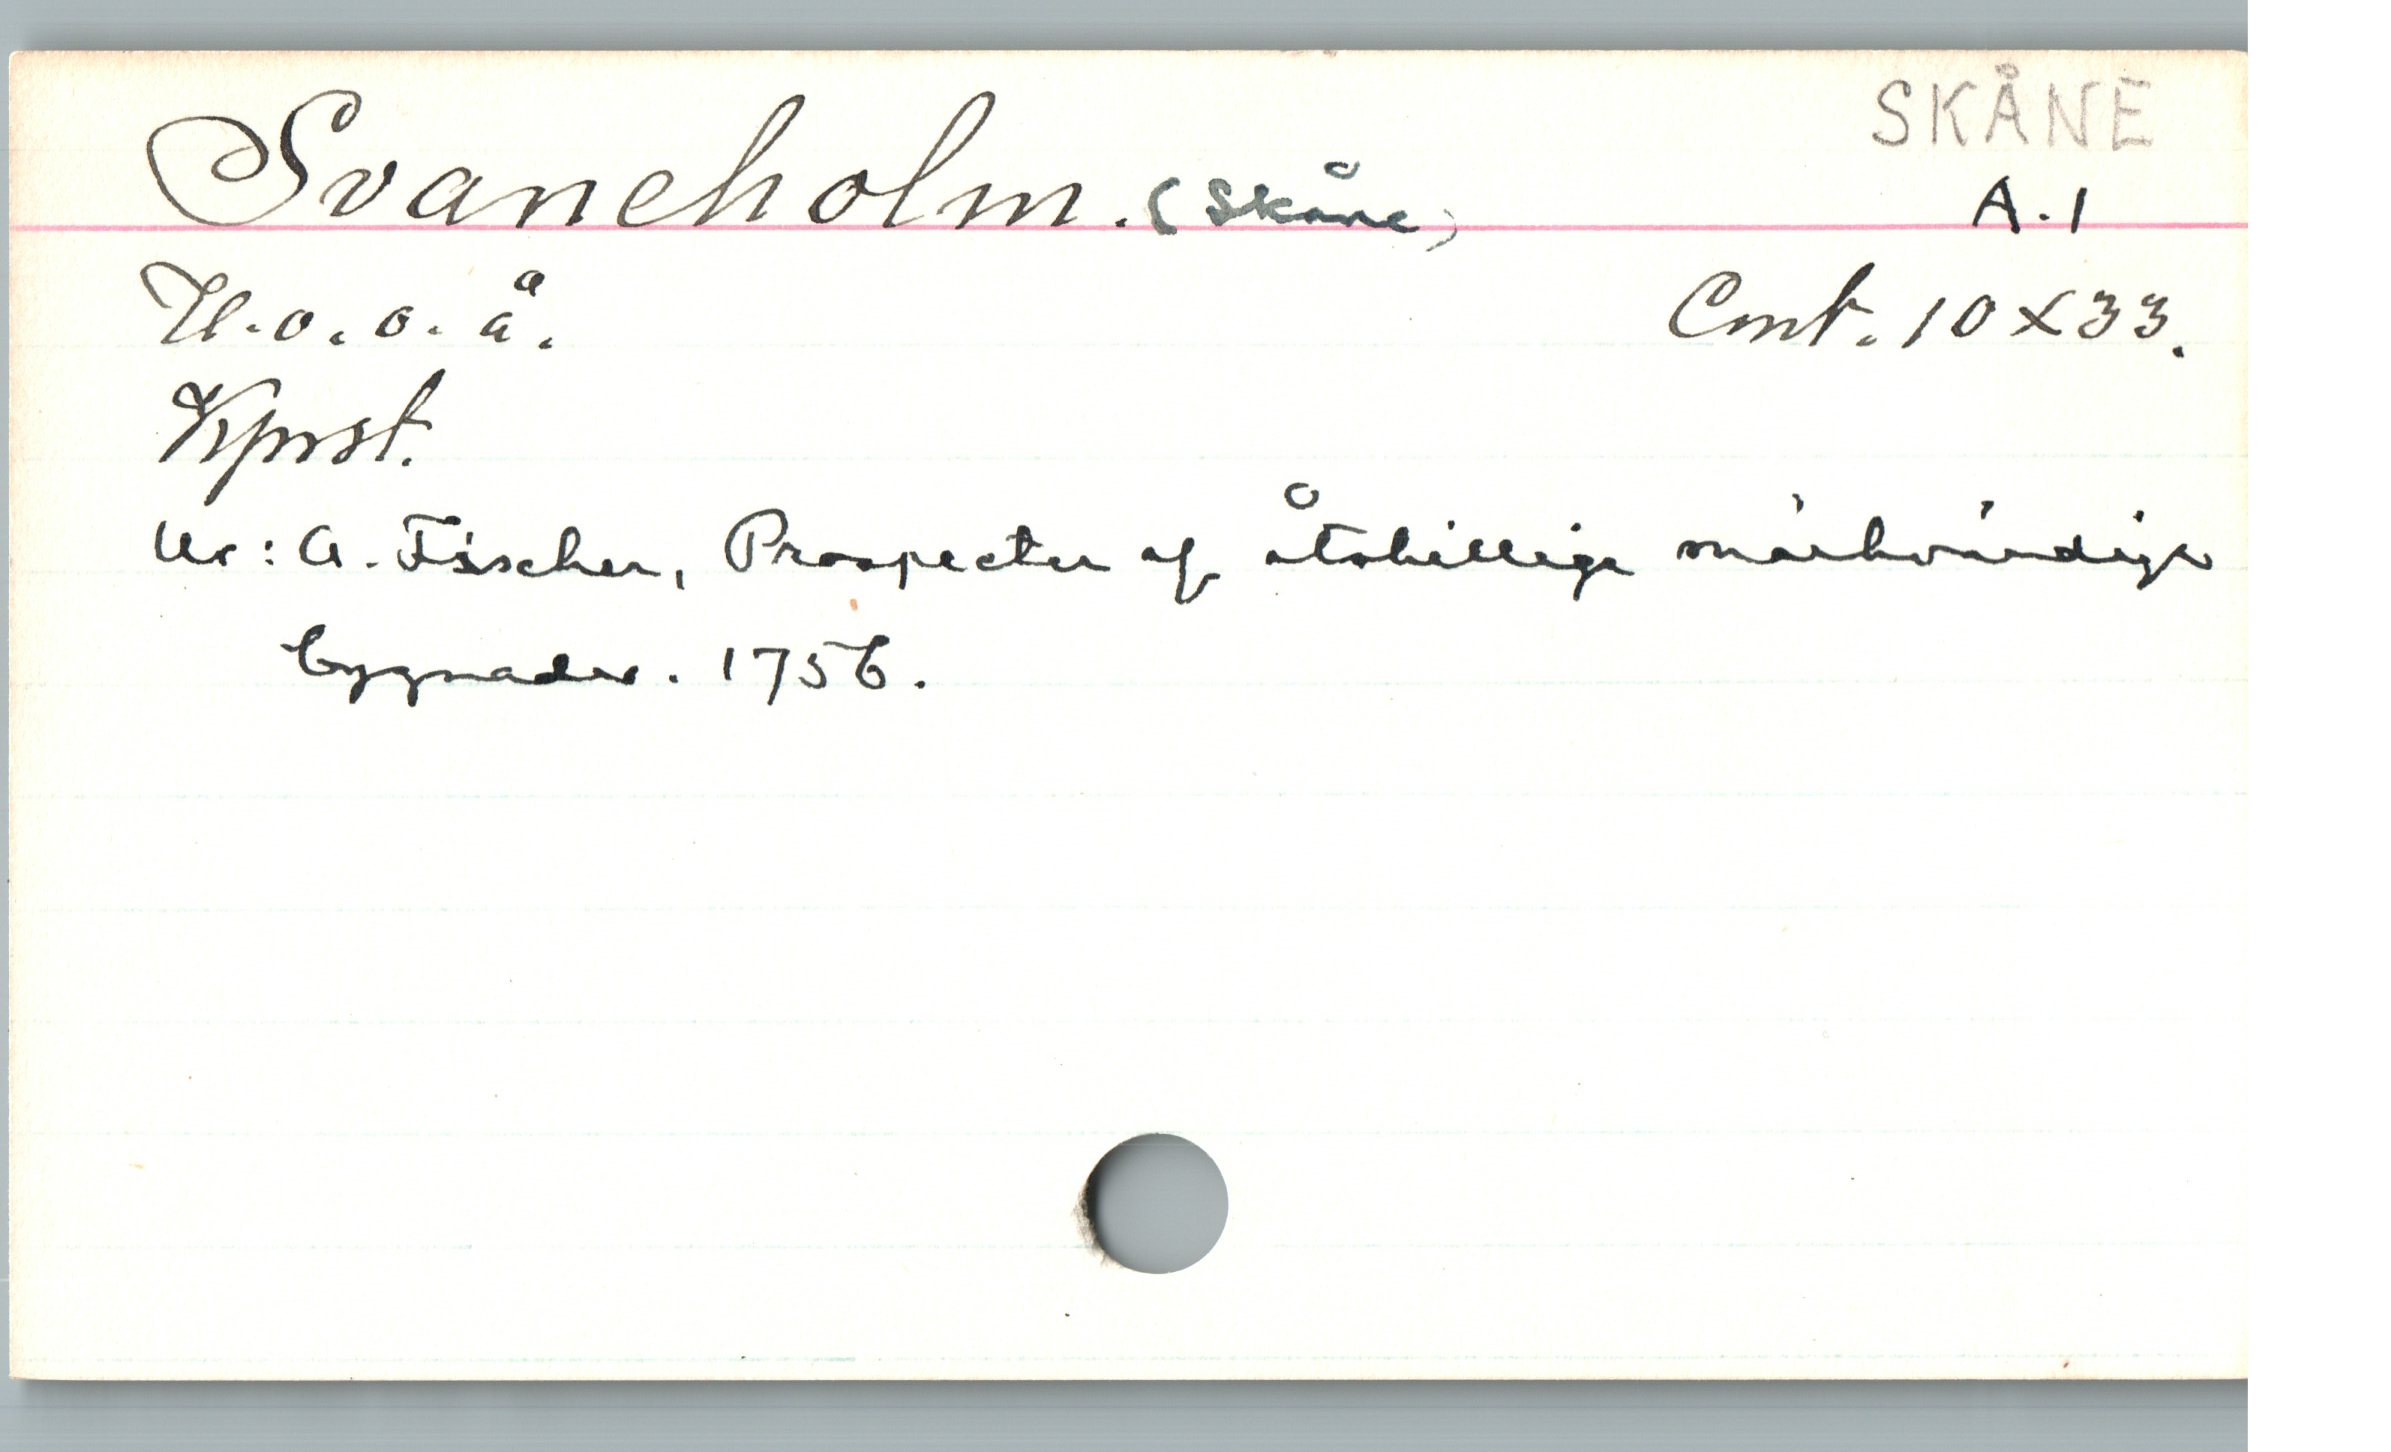 SKÅNE
Svaneholm. (Skåne)
A.1
U.o.o.å.
Cont. 10x33.
Kprst.
Ur: A. Fischer, Prospecter af åtskillige märkvärdige
bygnader. 1756.